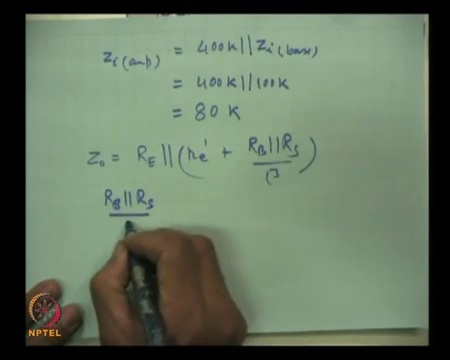 Zi(amp) = 400K || Zi(base)
= 400K || 100K
= 80 K
Zo = RE || (re' + RB || RS / β)
RB || RS
NPTEL